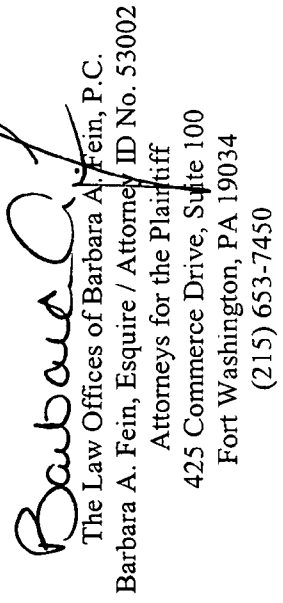 Barbara A. Fein
The Law Offices of Barbara A. Fein, P.C.
Barbara A. Fein, Esquire / Attorney ID No. 53002
Attorneys for the Plaintiff
425 Commerce Drive, Suite 100
Fort Washington, PA 19034
(215) 653-7450